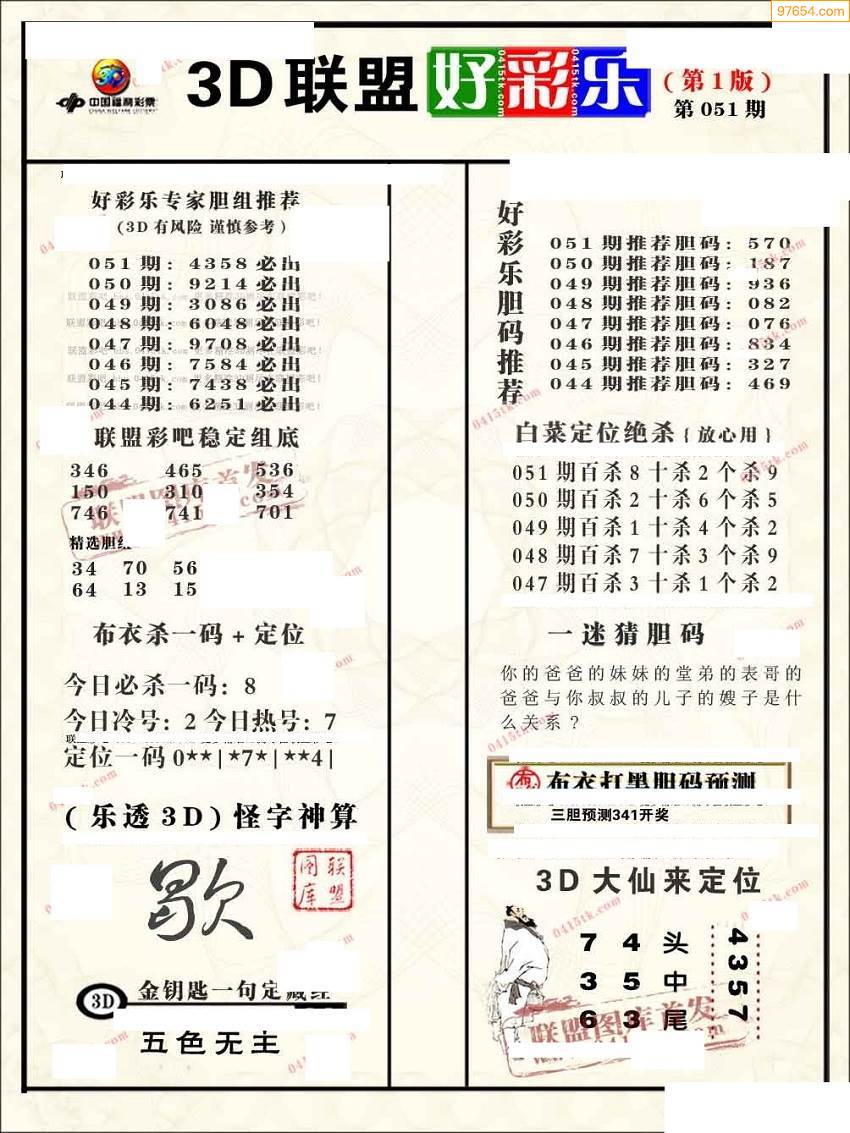 97654.com
中国福利彩票
CHINA WELFARE LOTTERY
3D联盟好彩乐
(第1版)
第051期
好彩乐专家胆组推荐
(3D有风险 谨慎参考)
051期: 4358必出
050期: 9214必出
049期: 3086必出
048期: 6048必出
047期: 9708必出
046期: 7584必出
045期: 7438必出
044期: 6251必出
联盟彩吧稳定组底
346 465 536
150 310 354
746 741 701
精选胆组
34 70 56
64 13 15
布衣杀一码+定位
今日必杀一码: 8
今日冷号: 2 今日热号: 7
定位一码 0**|*7*|**4|
(乐透3D)怪字神算
歇
联盟图库
3D 金钥匙一句定
五色无主
好彩乐胆码推荐
051期推荐胆码: 570
050期推荐胆码: 187
049期推荐胆码: 936
048期推荐胆码: 082
047期推荐胆码: 076
046期推荐胆码: 834
045期推荐胆码: 327
044期推荐胆码: 469
白菜定位绝杀{放心用}
051期百杀8十杀2个杀9
050期百杀2十杀6个杀5
049期百杀1十杀4个杀2
048期百杀7十杀3个杀9
047期百杀3十杀1个杀2
一迷猜胆码
你的爸爸的妹妹的堂弟的表哥的
爸爸与你叔叔的儿子的嫂子是什
么关系?
布衣打黑胆码预测
三胆预测341开奖
3D大仙来定位
7 4 头
3 5 中
6 3 尾
4357
联盟图库首发
0415tk.com